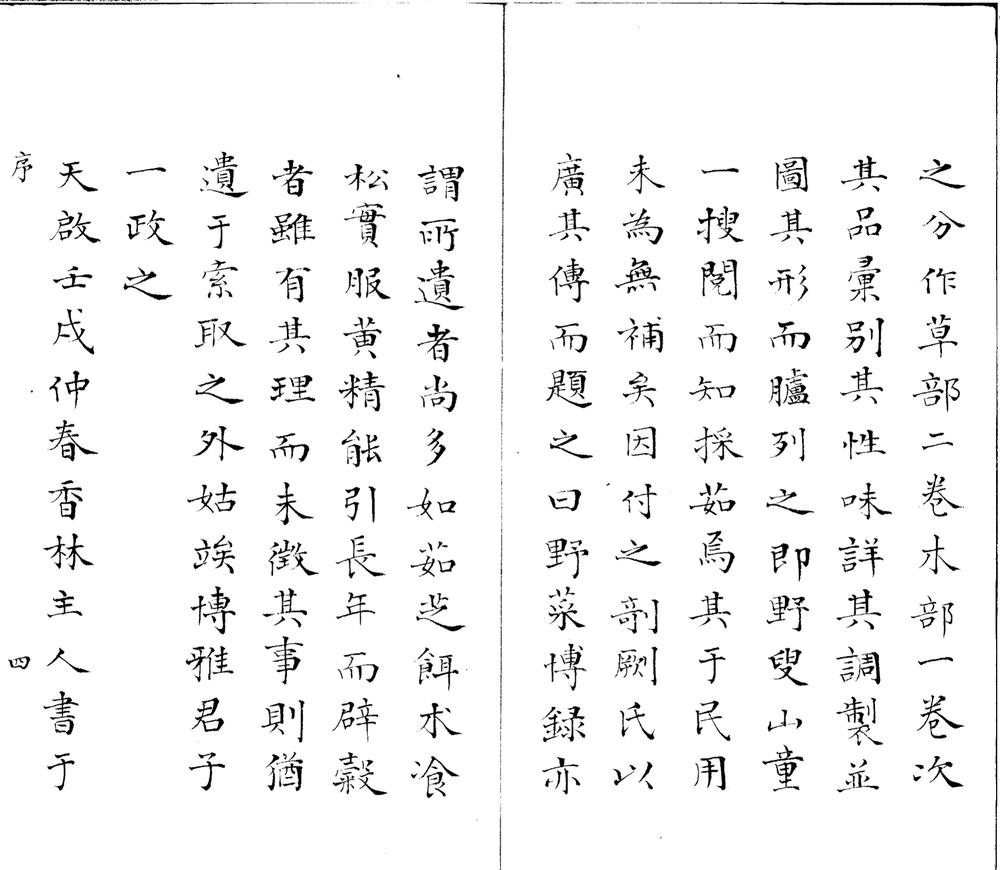 之分作草部二卷木部一卷次
其品彚别其性味詳其調製並
圖其形而臚列之即野叟山童
一搜閱而知採茹焉其于民用
未為無補矣因付之剞劂氏以
廣其傳而題之曰野菜博録亦
謂所遺者尚多如茹芝餌朮飡
松實服黄精能引長年而辟榖
者雖有其理而未徵其事則猶
遺于索取之外姑竢博雅君子
一政之
天啟壬戌仲春香林主人書于
序 四